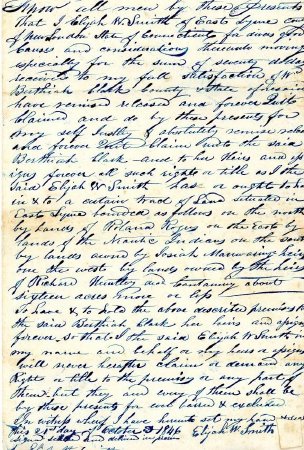 Know all men by these Presents
that I Elijah W. Smith of East Lyme
of New London State of Connecticut for divers good
Causes and considerations thereunto moving
especially for the sum of seventy dollars
received to my full satisfaction of
Berthiah Clark County & State aforesaid
have remised released and forever Quit
claimed and do by these presents for
my self Justly & absolutely remise release
and forever Quit Claim unto the said
Berthiah Clark and to her Heirs and
forever all such right or title as I the
said Elijah W Smith has or ought to have
in & to a certain tract of Land situated in
East Lyme bounded as follows on the north
by lands of Roland Rogers on the east by
lands of the Niantic Indians on the south
by lands owned by Josiah Manwaring heirs
on the west by lands owned by the heirs
of Richard Huntley and Containing about
sixteen acres more or less
To have & to hold the above described premises to
the said Berthiah Clark her heirs and assigns
forever, so that I the said Elijah W Smith in
my name and behalf or my heirs or assigns
will never hereafter claim or demand any
Right or title to the premises or any part of
them but they and every of them shall be
by these presents for ever barred & excluded
In witness whereof I have hereunto set my hand & seal
this 23d day of October 1846
signed sealed and delivered in presence Elijah W. Smith